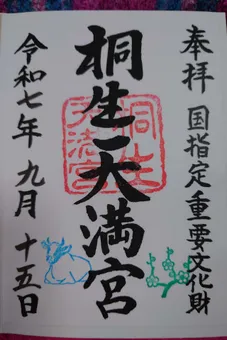 奉拝 国指定重要文化財
桐生天満宮
令和七年 九月 十五日